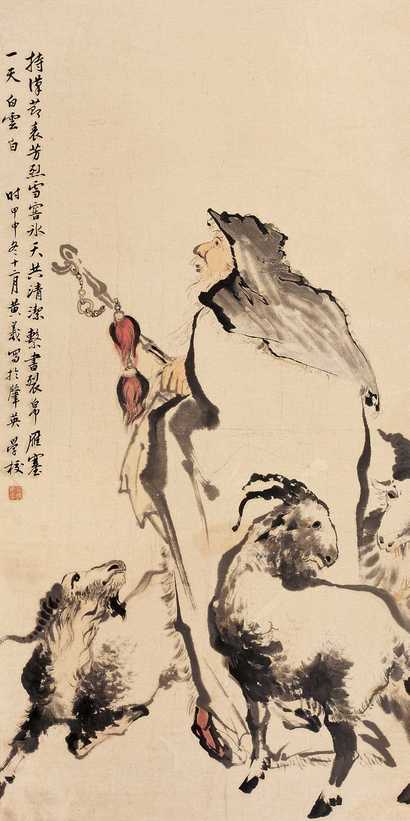 持漢節表芳烈雪窖冰天共清潔繫書裂帛雁塞
一天白雲白
時甲申冬十二月黃羲寫於肇英學校